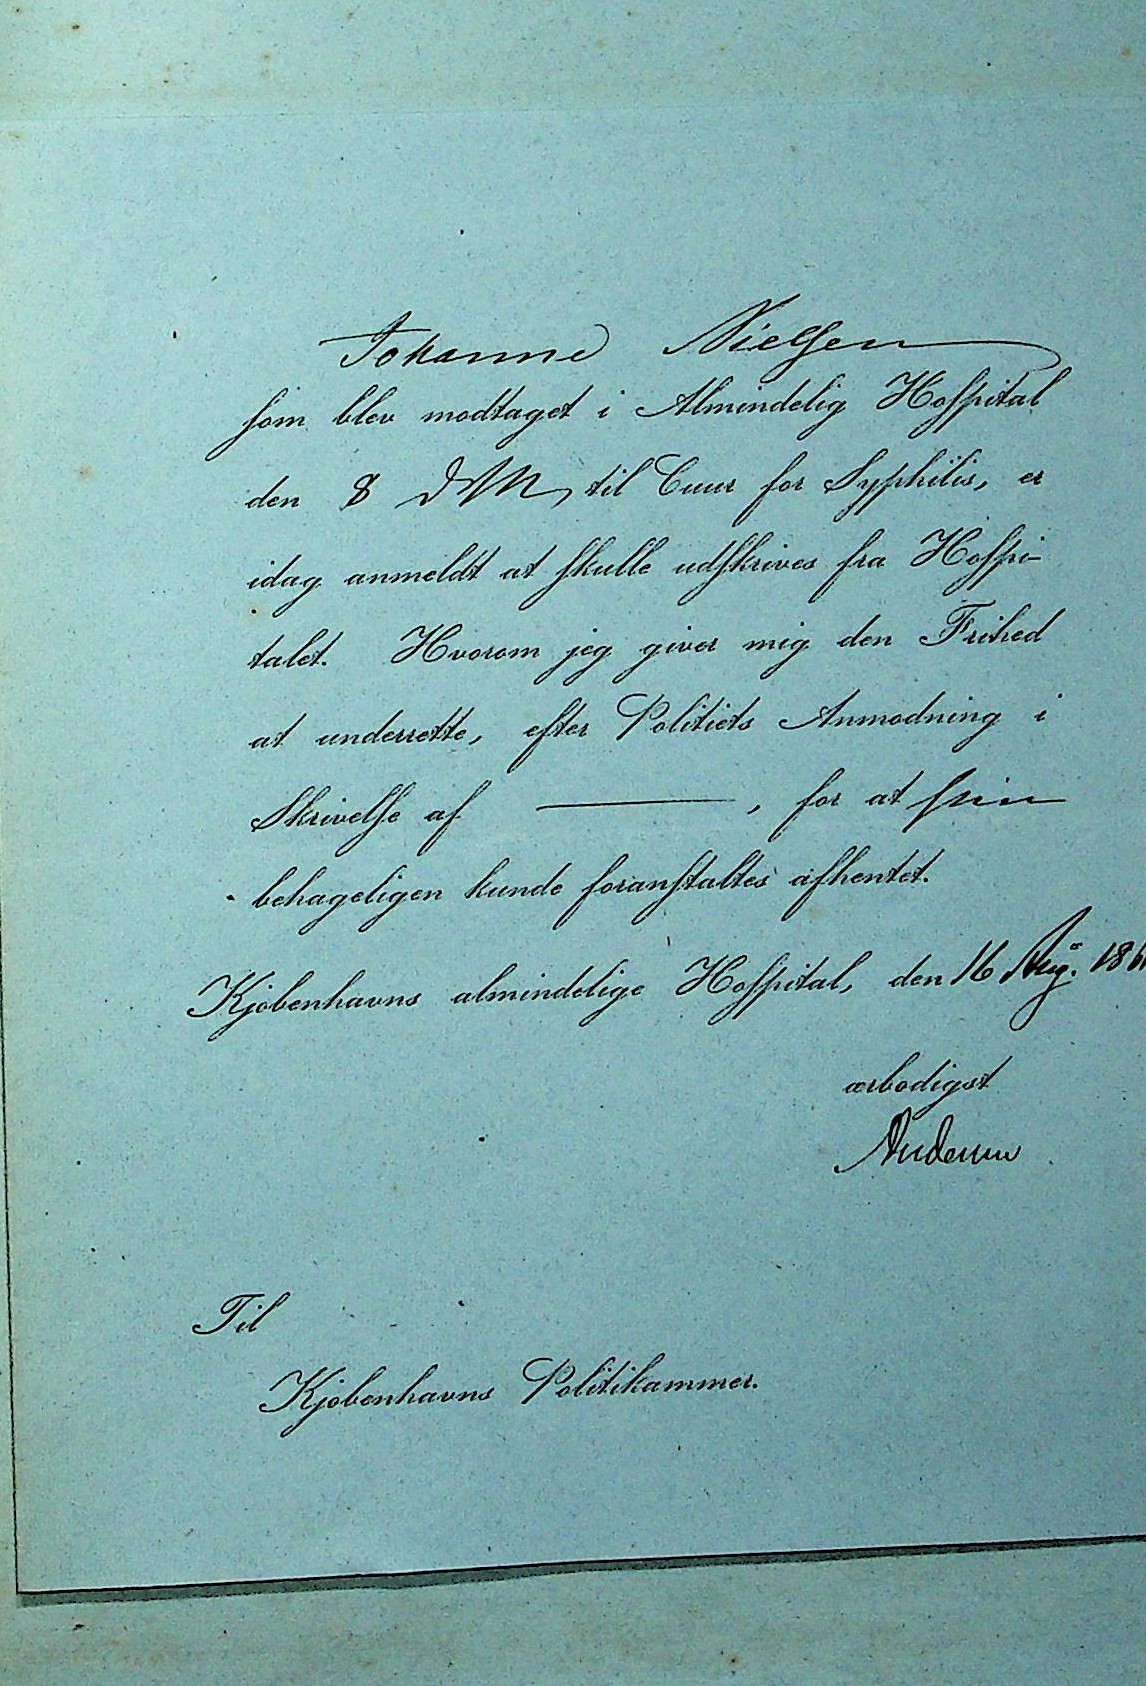 Johanne Nielsen
som blev modtaget i Almindelig Hospital
den 8 d M, til Cuur for Syphilis, er
idag anmeldt at skulle udskrives fra Hospi-
talet. Hvorom jeg giver mig den Frihed
at underrette, efter Politiets Anmodning i
Skrivelse af ———, for at hun
behageligen kunde foranstaltes afhentet.
Kjøbenhavns almindelige Hospital, den 16 Aug. 186
ærbødigst
Andersen
Til
Kjøbenhavns Politikammer.